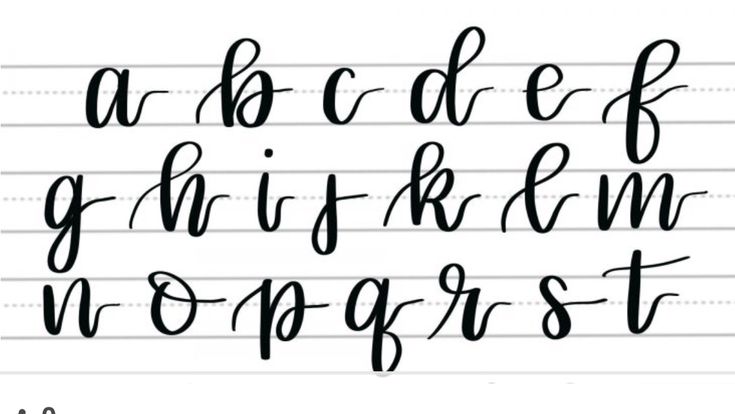 a b c d e f
g h i j k l m
n o p q r s t